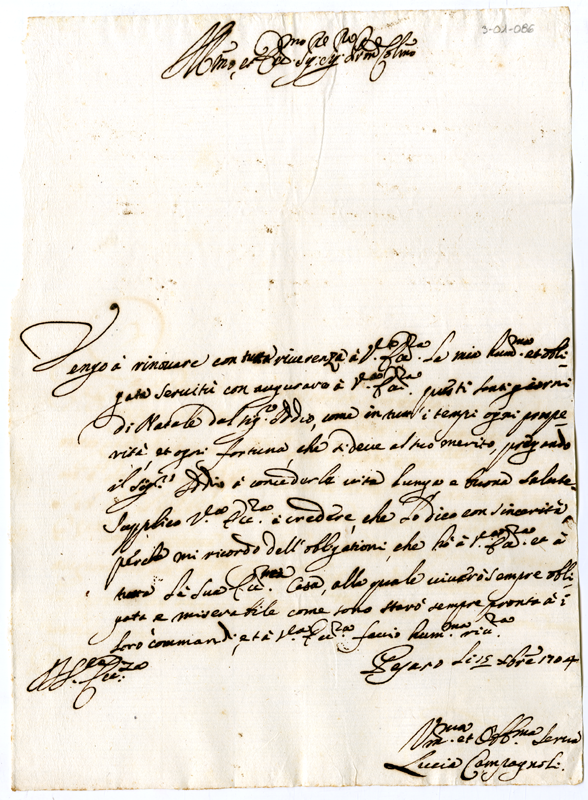 3-01-086
Ill.mo et Ecc.mo Sig.re Sig.re P.ron Col.mo
Vengo à rinovare con tutta riverenza à V.ra Ecc.za le mie hum.me et obli-
gate servitù con augurare à V.ra Ecc.za questi santi giorni
di Natale dal Sig.re Iddio, come in tutti i tempi ogni prospe-
rità, et ogni fortuna, che si deve al suo merito, pregando
il Sig.re Iddio à concederle vita lunga e buona salute
supplico V.ra Ecc.za à credere, che lo dico con sincerità
perche mi ricordo dell'obbligationi, che hò à V.ra Ecc.za et à
tutta la sua Ecc.ma Casa, alla quale viverò sempre obli-
gata e miserabile come sono starò sempre pronta à i
loro commandi, et à V.ra Ecc.za faccio hum.ma riv.za
Pesaro li 15 Xbre 1704
V.ra Ecc.za
Um.ma et Obb.ma Serva
Lucia Campagnoli